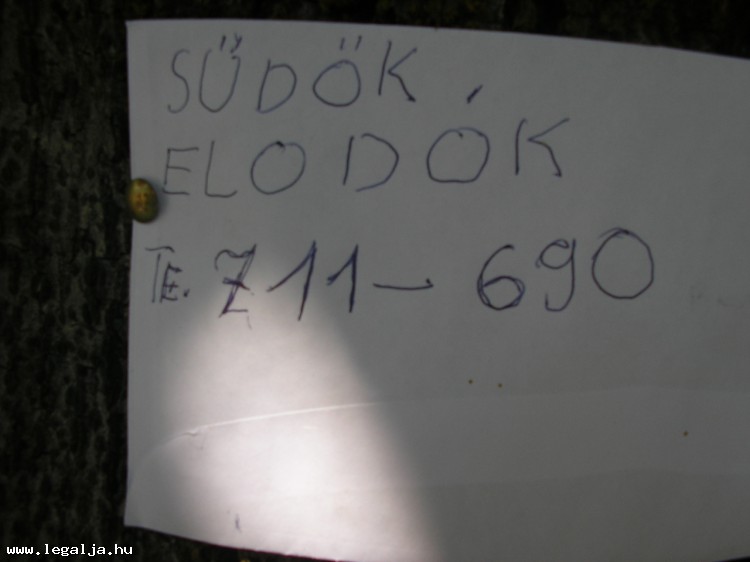 SŰDŐK,
ELODOK
TE. 711-690
www.legalja.hu